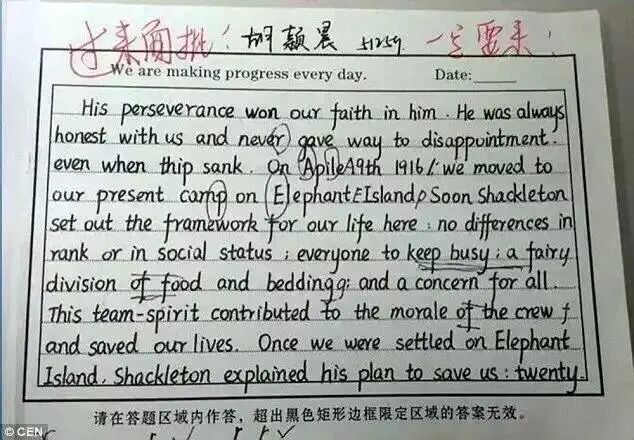 过来面批！ 胡颖晨 51259 一定要来！
We are making progress every day. Date:
His perseverance won our faith in him. He was always
honest with us and never gave way to disappointment.
even when thip sank. On Apile49th 1916/: we moved to
our present camp on Elephant Island/ Soon Shackleton
set out the framework for our life here : no differences in
rank or in social status ; everyone to keep busy ; a fairy
division of food and beddingg; and a concern for all.
This team-spirit contributed to the morale of the crew f
and saved our lives. Once we were settled on Elephant
Island, Shackleton explained his plan to save us : twenty
请在答题区域内作答，超出黑色矩形边框限定区域的答案无效。
© CEN